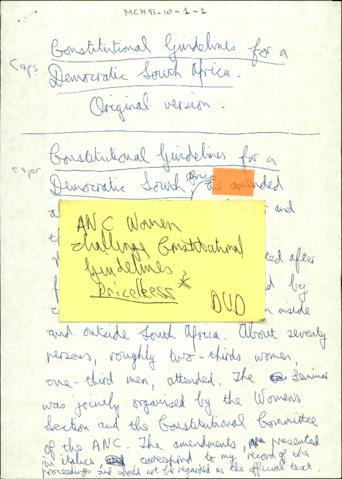 MCH91-10-1-1
Constitutional Guidelines for a
Caps
Democratic South Africa.
Original version.
Constitutional Guidelines for a
Caps
Democratic South Africa as amended
and
ANC Women
challenge Constitutional
Guidelines
Priceless *
DUD
after
by
inside
and outside South Africa. About seventy
persons, roughly two-thirds women,
one-third men, attended. The Seminar
was jointly organised by the Women's
Section and the Constitutional Committee
of the ANC. The amendments, presented
in italics correspond to my record of the
proceedings and should not be regarded as the official text.